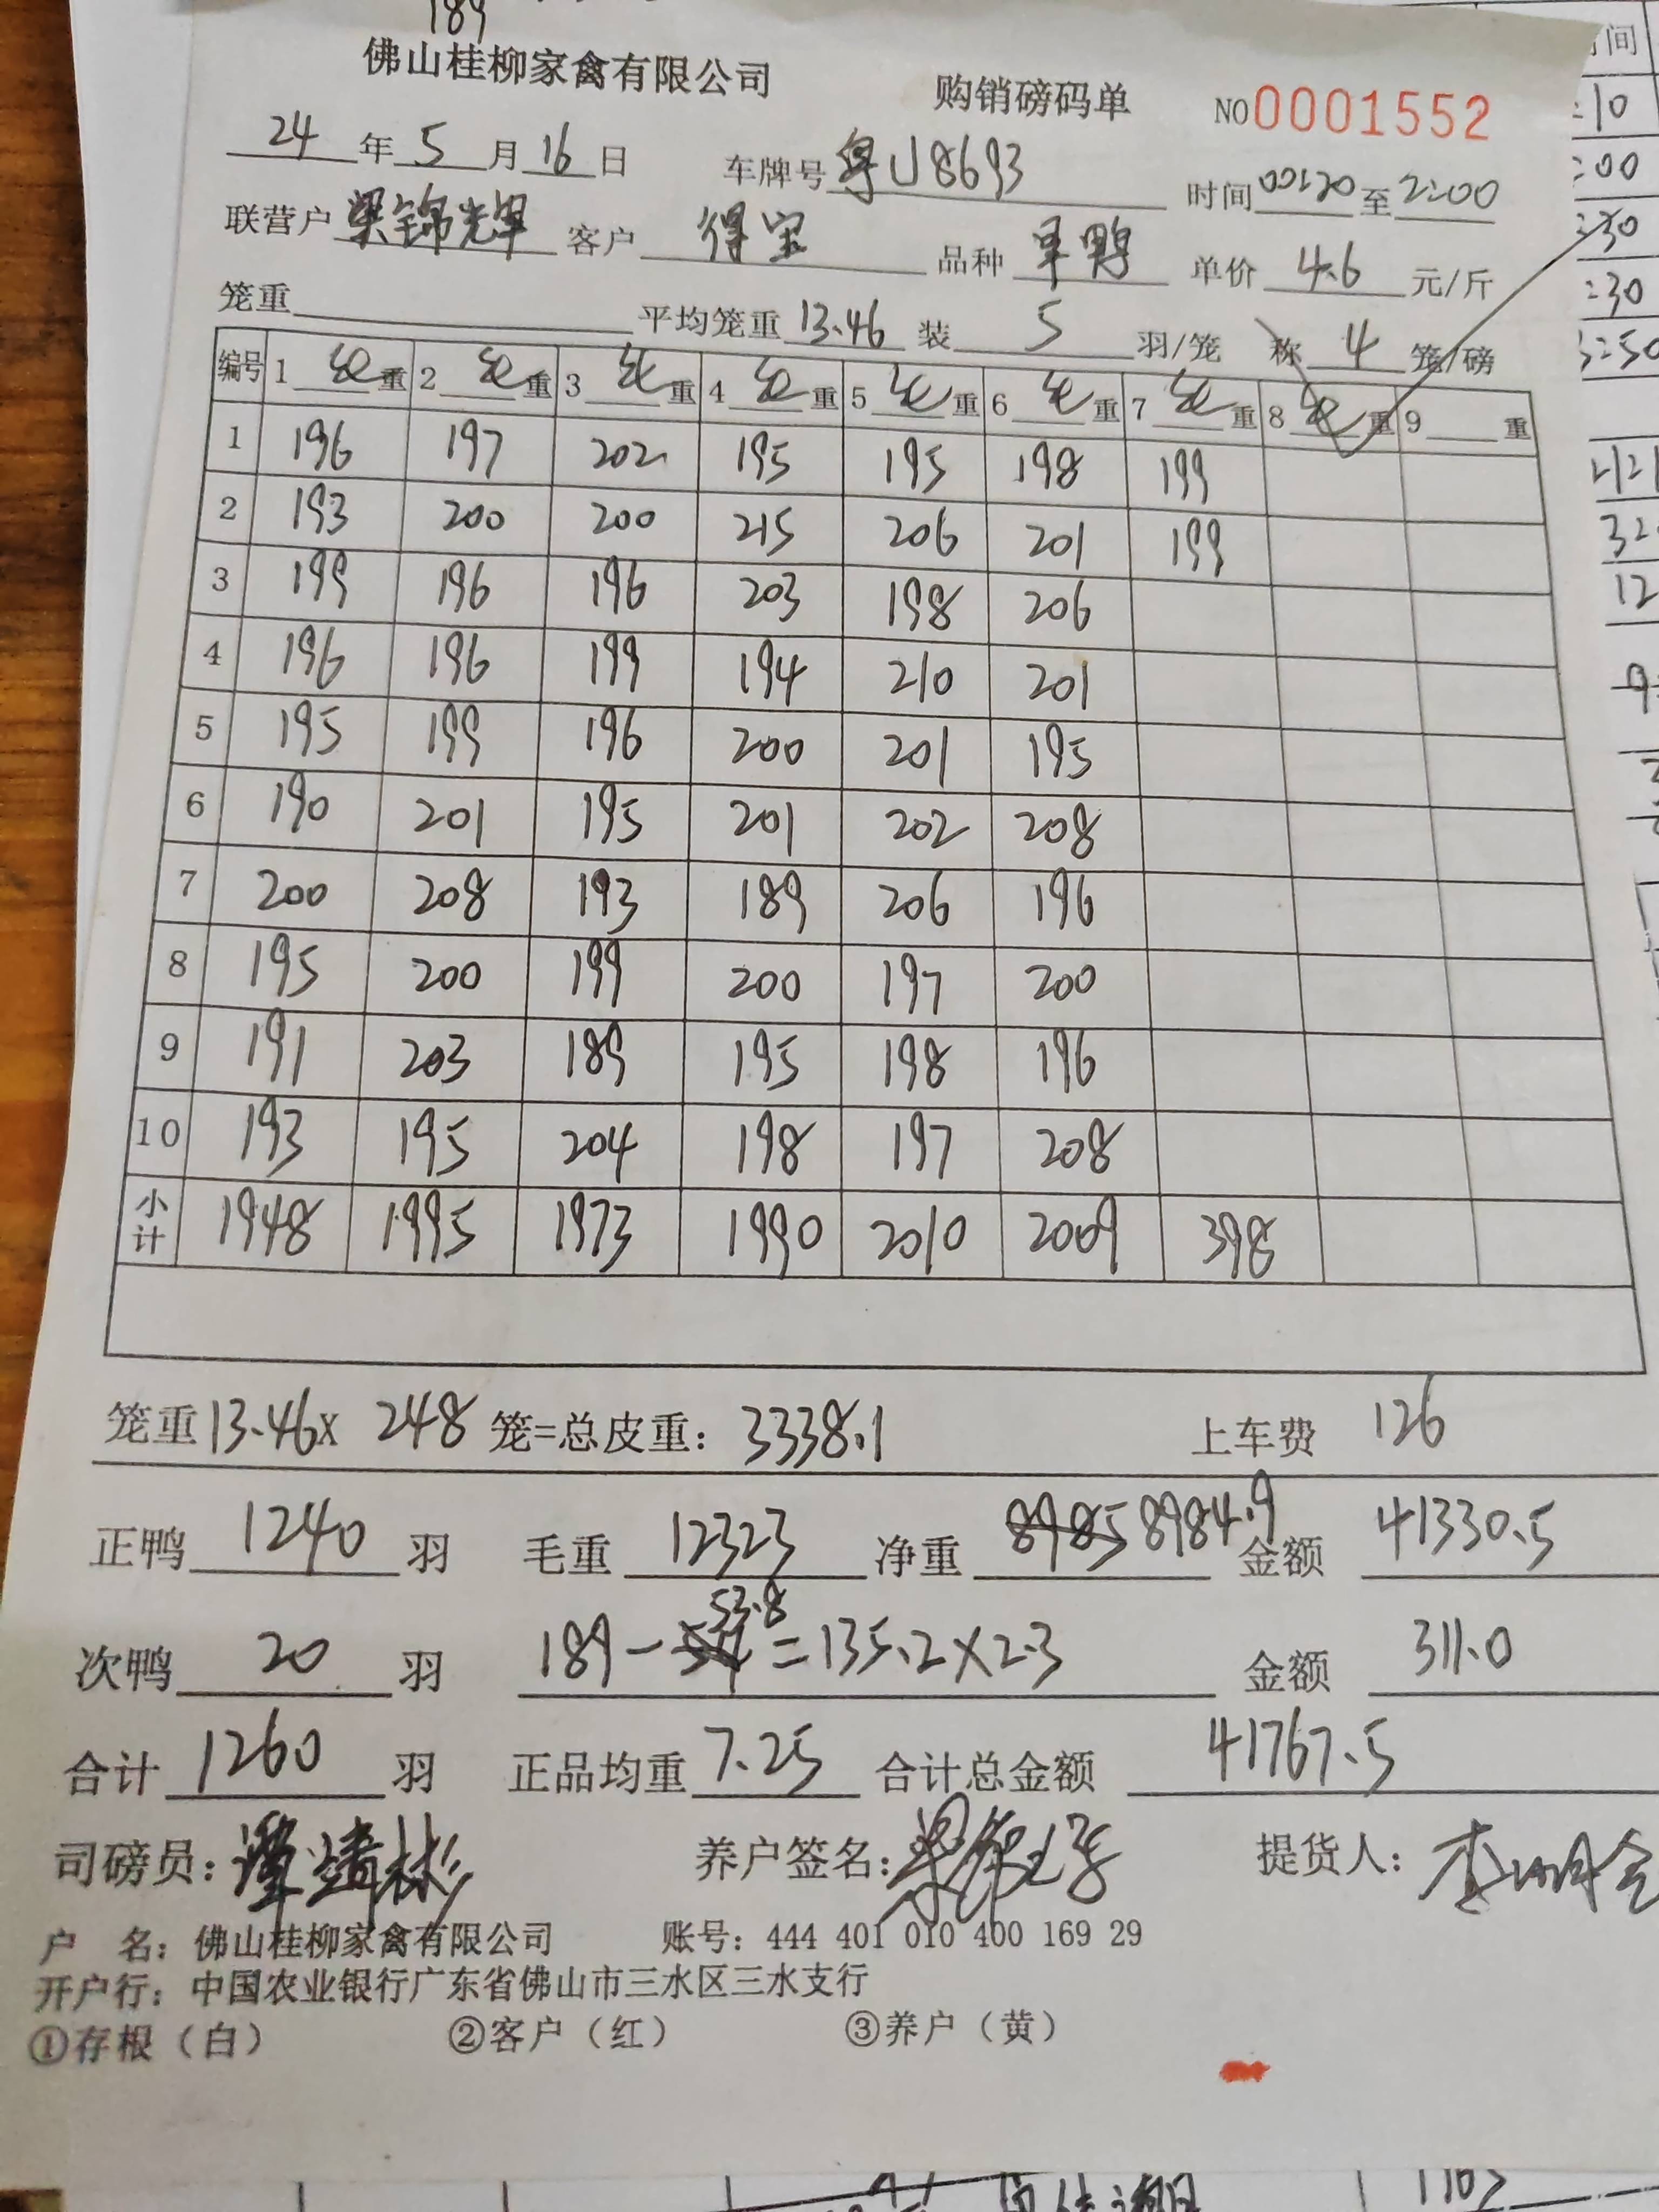 189
佛山桂柳家禽有限公司 购销磅码单 NO 0001552
24 年 5 月 16 日 车牌号 粤U8693 时间 00:20 至 2:00
联营户 梁锦光军 客户 得宝 品种 旱鸭 单价 4.6 元/斤
笼重 平均笼重 13.46 装 5 羽/笼 称 4 笼/磅
编号 1 重 2 重 3 重 4 重 5 重 6 重 7 重 8 重 9 重
1 196 197 202 195 195 198 199
2 193 200 200 215 206 201 199
3 199 196 196 203 198 206
4 196 196 199 194 210 201
5 195 199 196 200 201 195
6 190 201 195 201 202 208
7 200 208 193 189 206 196
8 195 200 199 200 197 200
9 191 203 189 195 198 196
10 193 195 204 198 197 208
小计 1948 1995 1973 1990 2010 2009 398
笼重 13.46 x 248 笼=总皮重: 3338.1 上车费 126
正鸭 1240 羽 毛重 12323 净重 8985 8984.9 金额 41330.5
次鸭 20 羽 189 - 54 53.8 = 135.2 × 2.3 金额 311.0
合计 1260 羽 正品均重 7.25 合计总金额 41767.5
司磅员: 养户签名: 提货人:
户 名: 佛山桂柳家禽有限公司 账号: 444 401 010 400 169 29
开户行: 中国农业银行广东省佛山市三水区三水支行
①存根（白） ②客户（红） ③养户（黄）